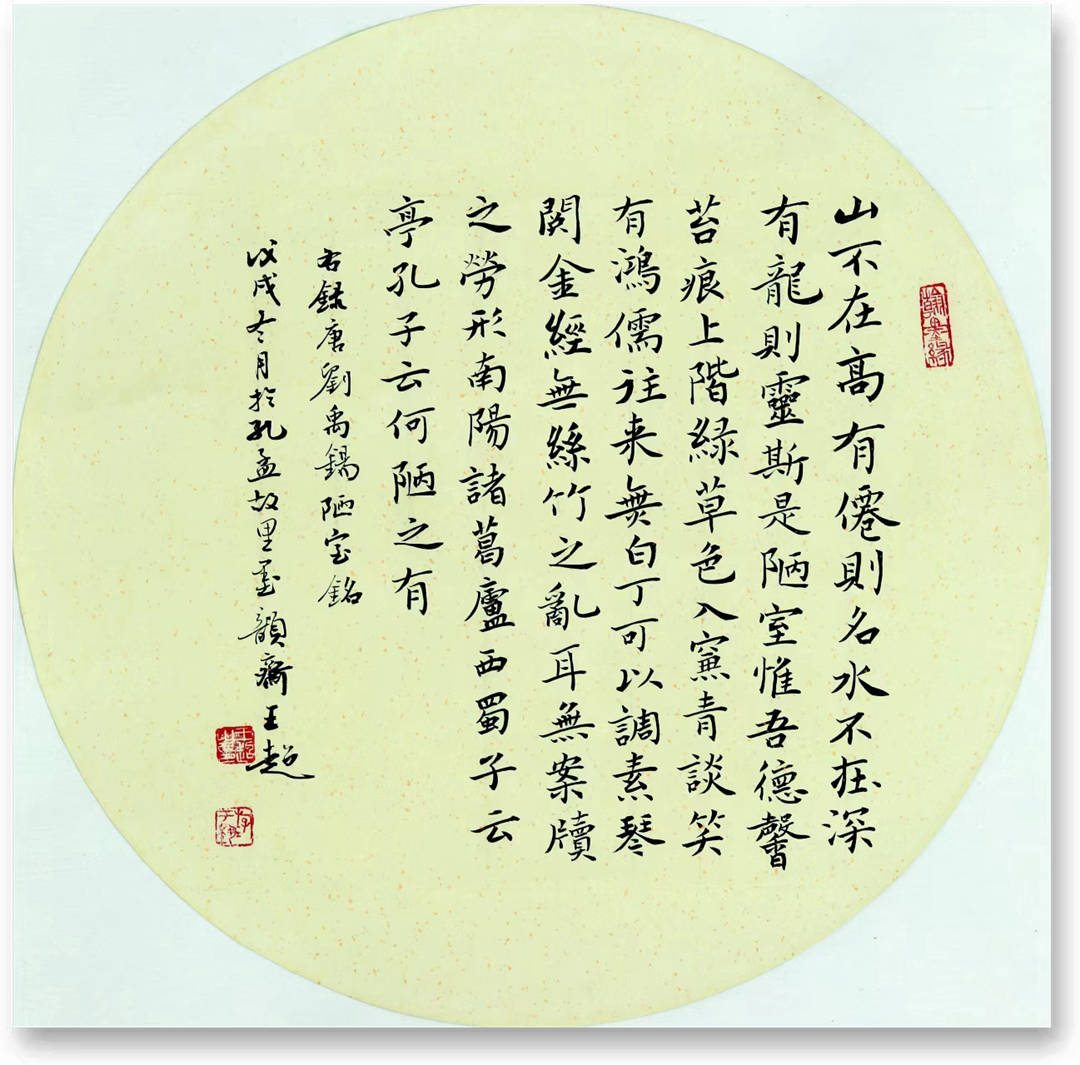 山不在高有僊則名水不在深
有龍則靈斯是陋室惟吾德馨
苔痕上階緑草色入簾青談笑
有鴻儒往来無白丁可以調素琴
閱金經無絲竹之亂耳無案牘
之勞形南陽諸葛廬西蜀子云
亭孔子云何陋之有
右録唐劉禹錫陋室銘
戊戌冬月於孔孟故里墨韻齋王超
翰墨缘